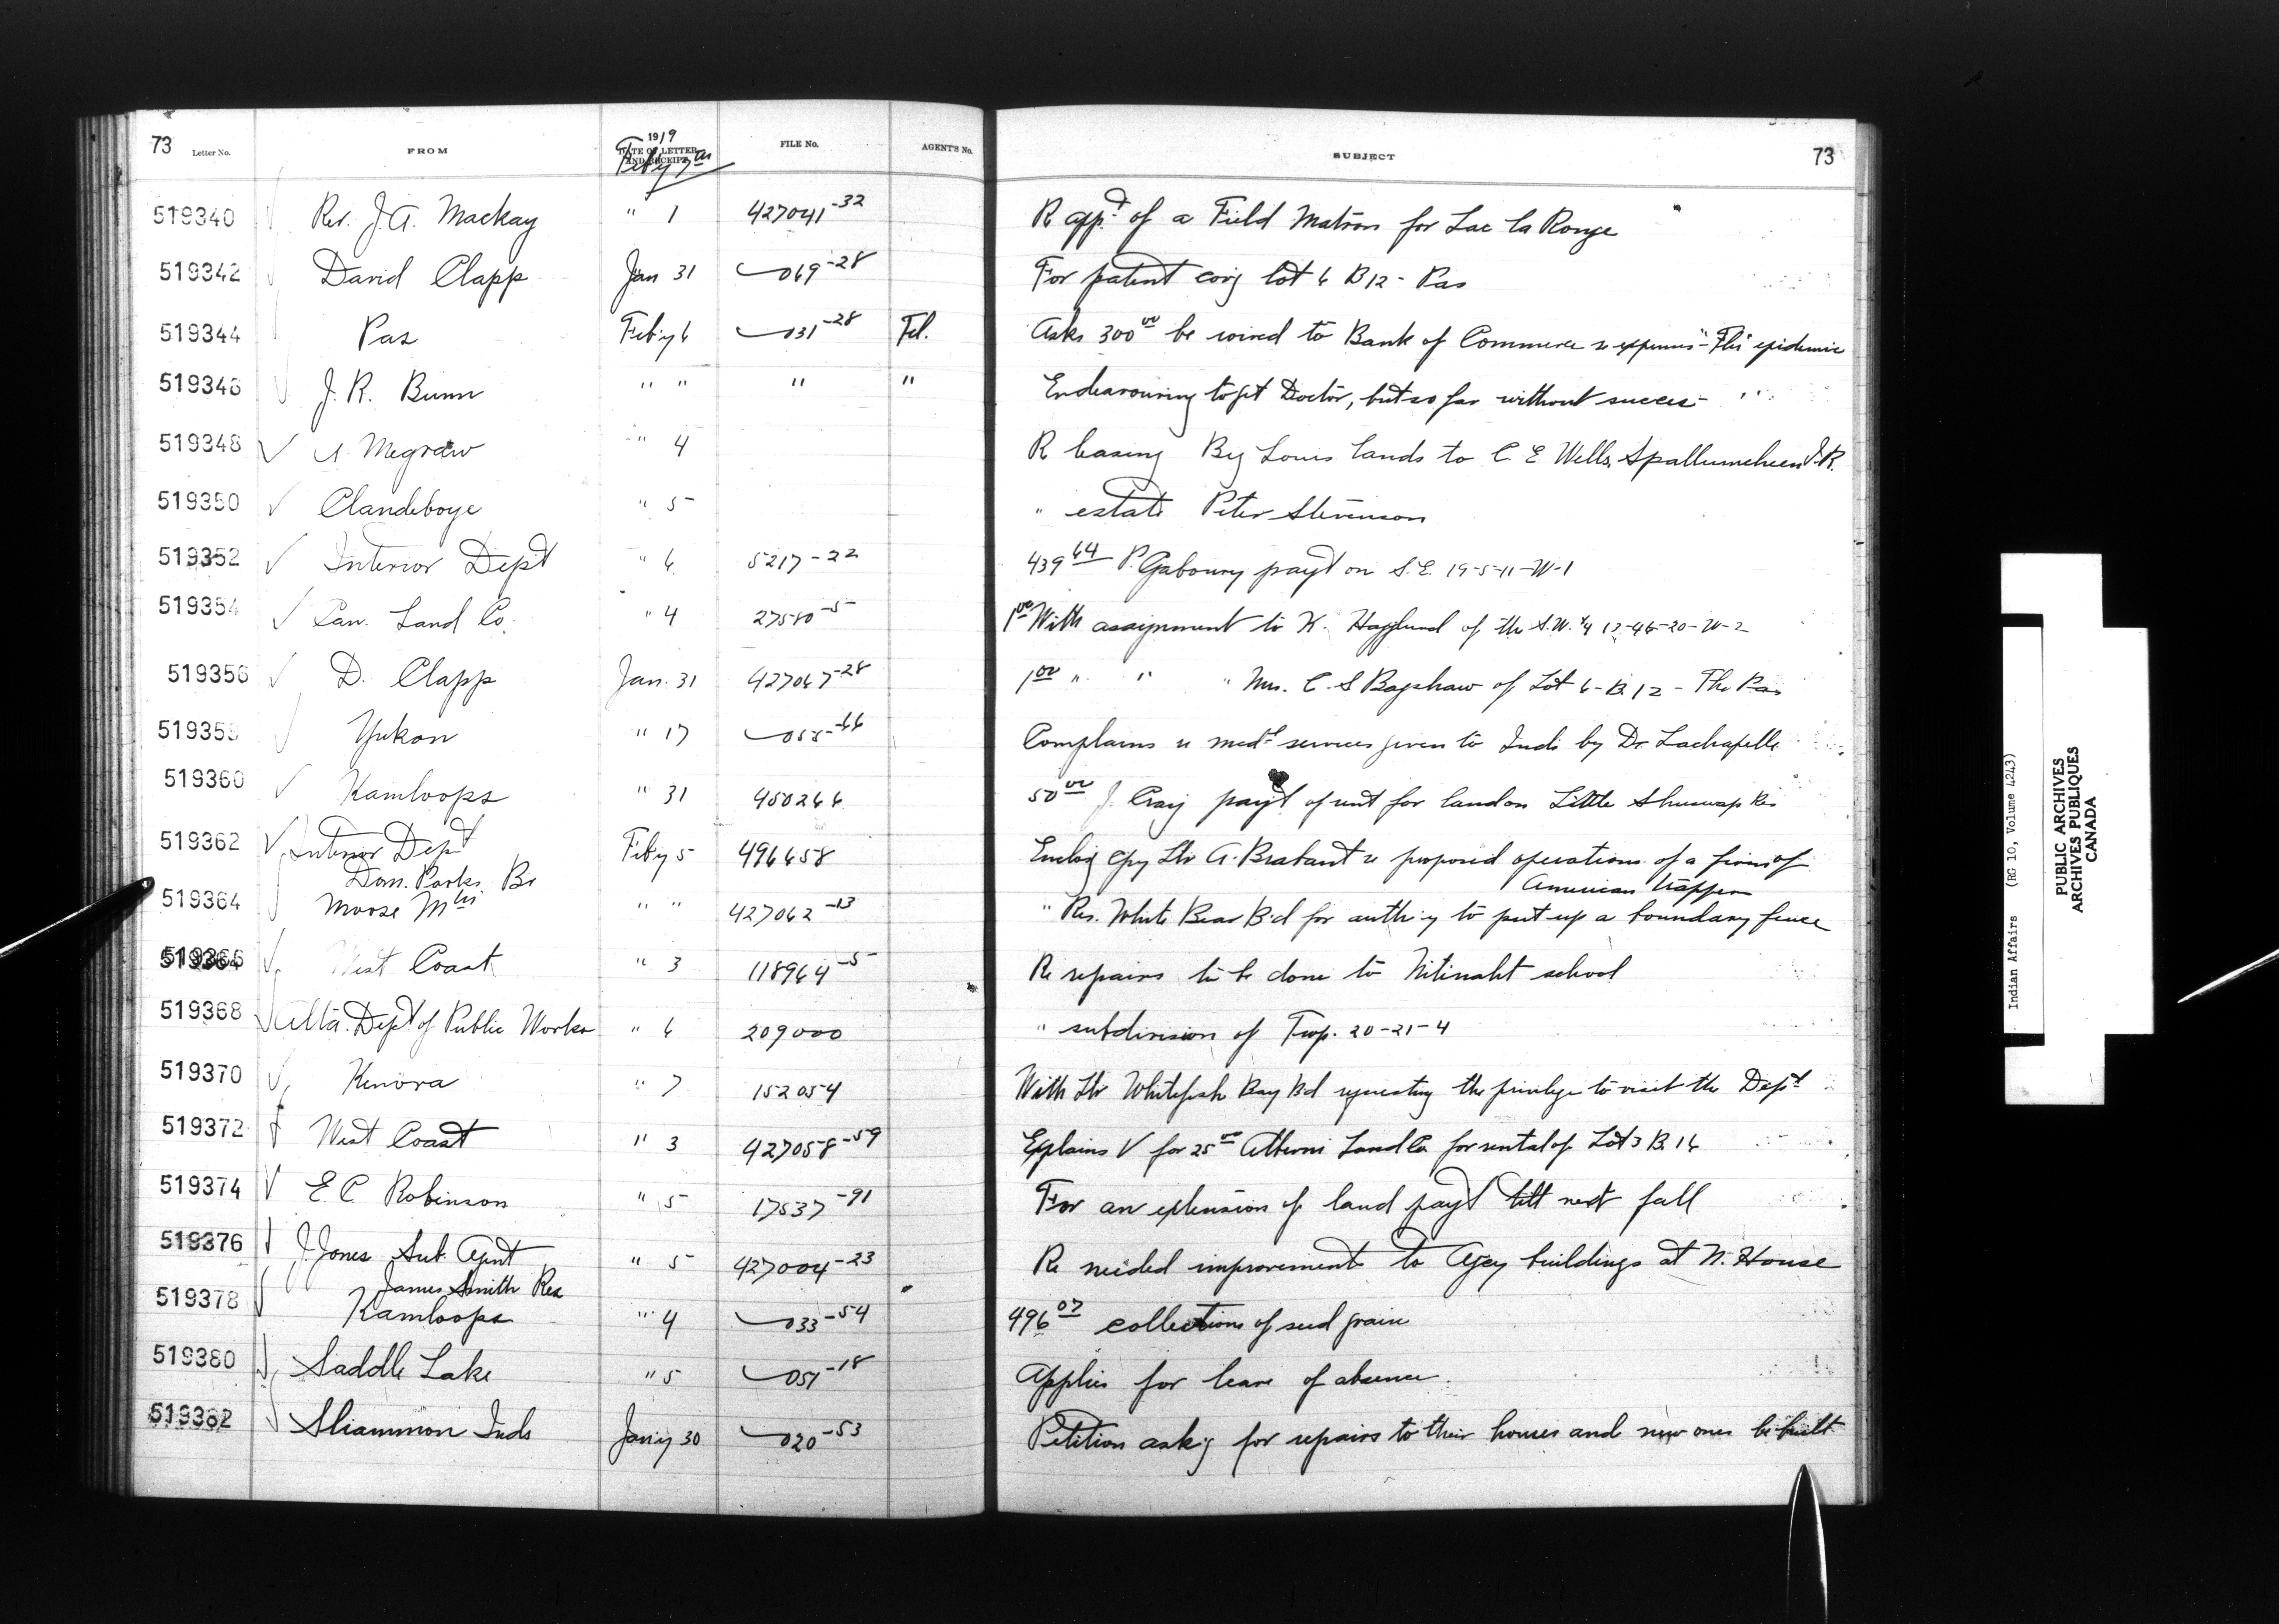 73 Letter No. FROM 1919 DATE OF LETTER AND RECEIPT FILE No. AGENT'S No. SUBJECT 73
Feby 7th
519340 Rev. J. A. Mackay " 1 427041-32 R app't of a Field Matron for Lac la Ronge
519342 David Clapp Jan 31 069-28 For patent cov'g lot 6 B12 - Pas
519344 Pas Feb'y 6 031-28 Tel. Asks 300 00 be wired to Bank of Commerce re expenses - "Flu" epidemic
519346 J. R. Bunn " " " " Endeavouring to get Doctor, but so far without success - "
519348 A. Megraw " 4 R leasing Big Louis lands to C. E Wells, Spallumcheen I.R.
519350 Clandeboye " 5 " estate Peter Stevenson
519352 Interior Dep't " 6 5217-22 439 64 P. Gaboury pay't on S.E. 19-5-11-W-1
519354 Can. Land Co. " 4 27580-5 1 00 With assignment to K. Hagglund of the S.W. ¼ 12-46-20-W-2
519356 D. Clapp Jan. 31 427067-28 1 00 " " " Mrs. C. S Bagshaw of Lot 6-B 12 - The Pas
519358 Yukon " 17 055-66 Complains re med'l services given to Inds by Dr. Lachapelle
519360 Kamloops " 31 450266 50 00 J. Craig pay't of rent for land on Little Shuswap Res
519362 Interior Dep't Feb'y 5 496658 Enclos'g copy Ltr A. Brabant re proposed operations of a firm of
Dom. Parks Br American trappers
519364 Moose Mtn " " 427062-13 " Res. White Bear B'd for auth'y to put up a boundary fence
519366 West Coast " 3 118964-5 Re repairs to be done to Nitinaht school
519368 Alta. Dep't of Public Works " 6 209000 " subdivision of Twp. 20-21-4
519370 Kenora " 7 152054 With Ltr Whitefish Bay B'd requesting the privilege to visit the Dep't
519372 West Coast " 3 427058-59 Explains V for 25 00 Alberni Land Co for rental of Lot 3 B. 16
519374 E. C Robinson " 5 17537-91 For an extension of land pay't till next fall
519376 J. Jones Sub. Agent " 5 427004-23 Re needed improvements to Agcy buildings at N. House
James Smith Res
519378 Kamloops " 4 033-54 496 07 collections of seed grain
519380 Saddle Lake " 5 051-18 Applies for leave of absence.
519382 Sliammon Inds Jan'y 30 020-53 Petition ask'g for repairs to their houses and new ones be built
Indian Affairs (RG 10, Volume 4243)
PUBLIC ARCHIVES
ARCHIVES PUBLIQUES
CANADA